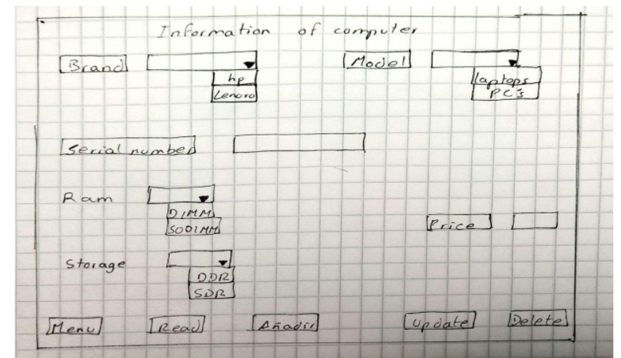 Information of computer
Brand Model
hp laptops
Lenovo PC's
Serial number
Ram
DIMM
SODIMM Price
Storage
DDR
SDR
Menu Read Añadir Update Delete